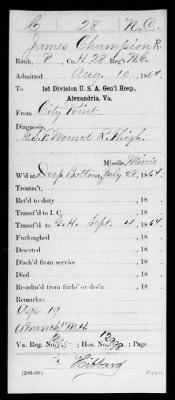 C 28 N.C.
James Champion R.
Rank, P Co. H. 28 Reg't N.C.
Admitted Aug. 10, 1864.
To 1st Division U. S. A. Gen'l Hosp.,
Alexandria, Va.
From City Point
Diagnosis,
Wound L. Thigh.
Missile, Minie
W'd at Deep Bottom, July 28, 1864.
Treatm't,
Ret'd to duty , 18 .
Transf'd to I. C. , 18 .
Transf'd to G.H. Sept. 4, 1864.
Furloughed , 18 .
Deserted , 18 .
Disch'd from service , 18 .
Died , 18 .
Readm'd from furlo' or des'n , 18 .
Remarks:
Age 19
Branch M.H.
Va. Reg. No. ; Hos. No. ; Page
Hibbard